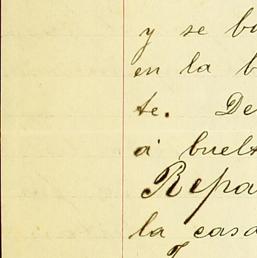 y se ba
en la b
te. De
á buelt
Repa
la casa